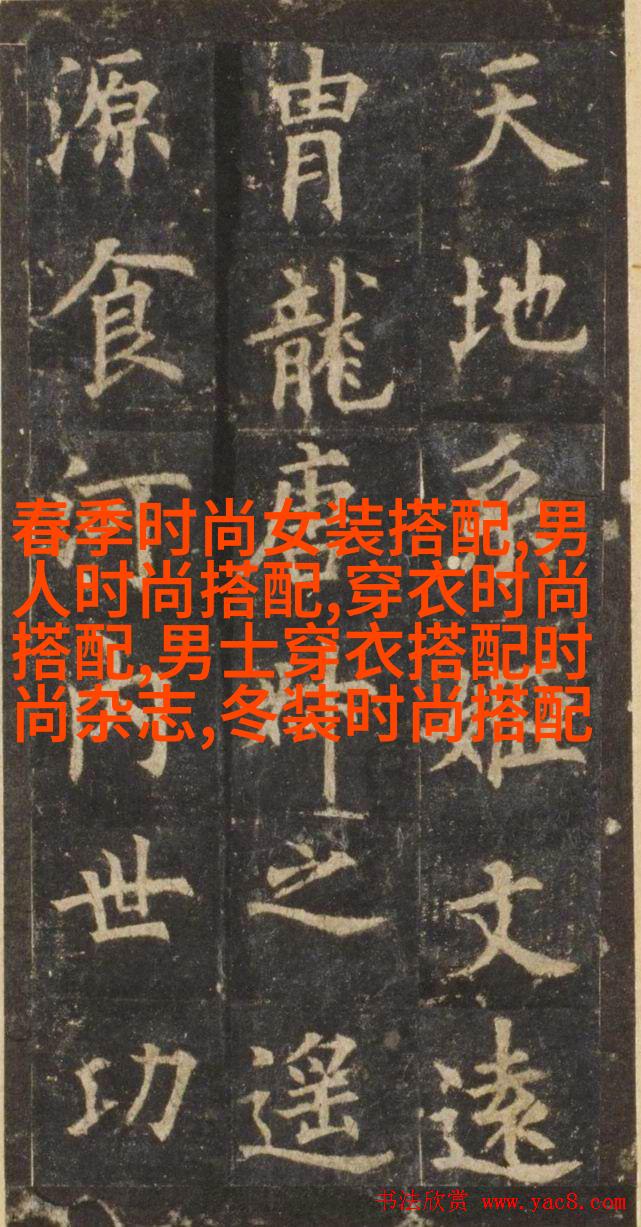 天地姬文遠
胄龍唐之遥
源食河内世功
春季时尚女装搭配,男
人时尚搭配,穿衣时尚
搭配,男士穿衣搭配时
尚杂志,冬装时尚搭配
书法欣赏 www.yac8.com